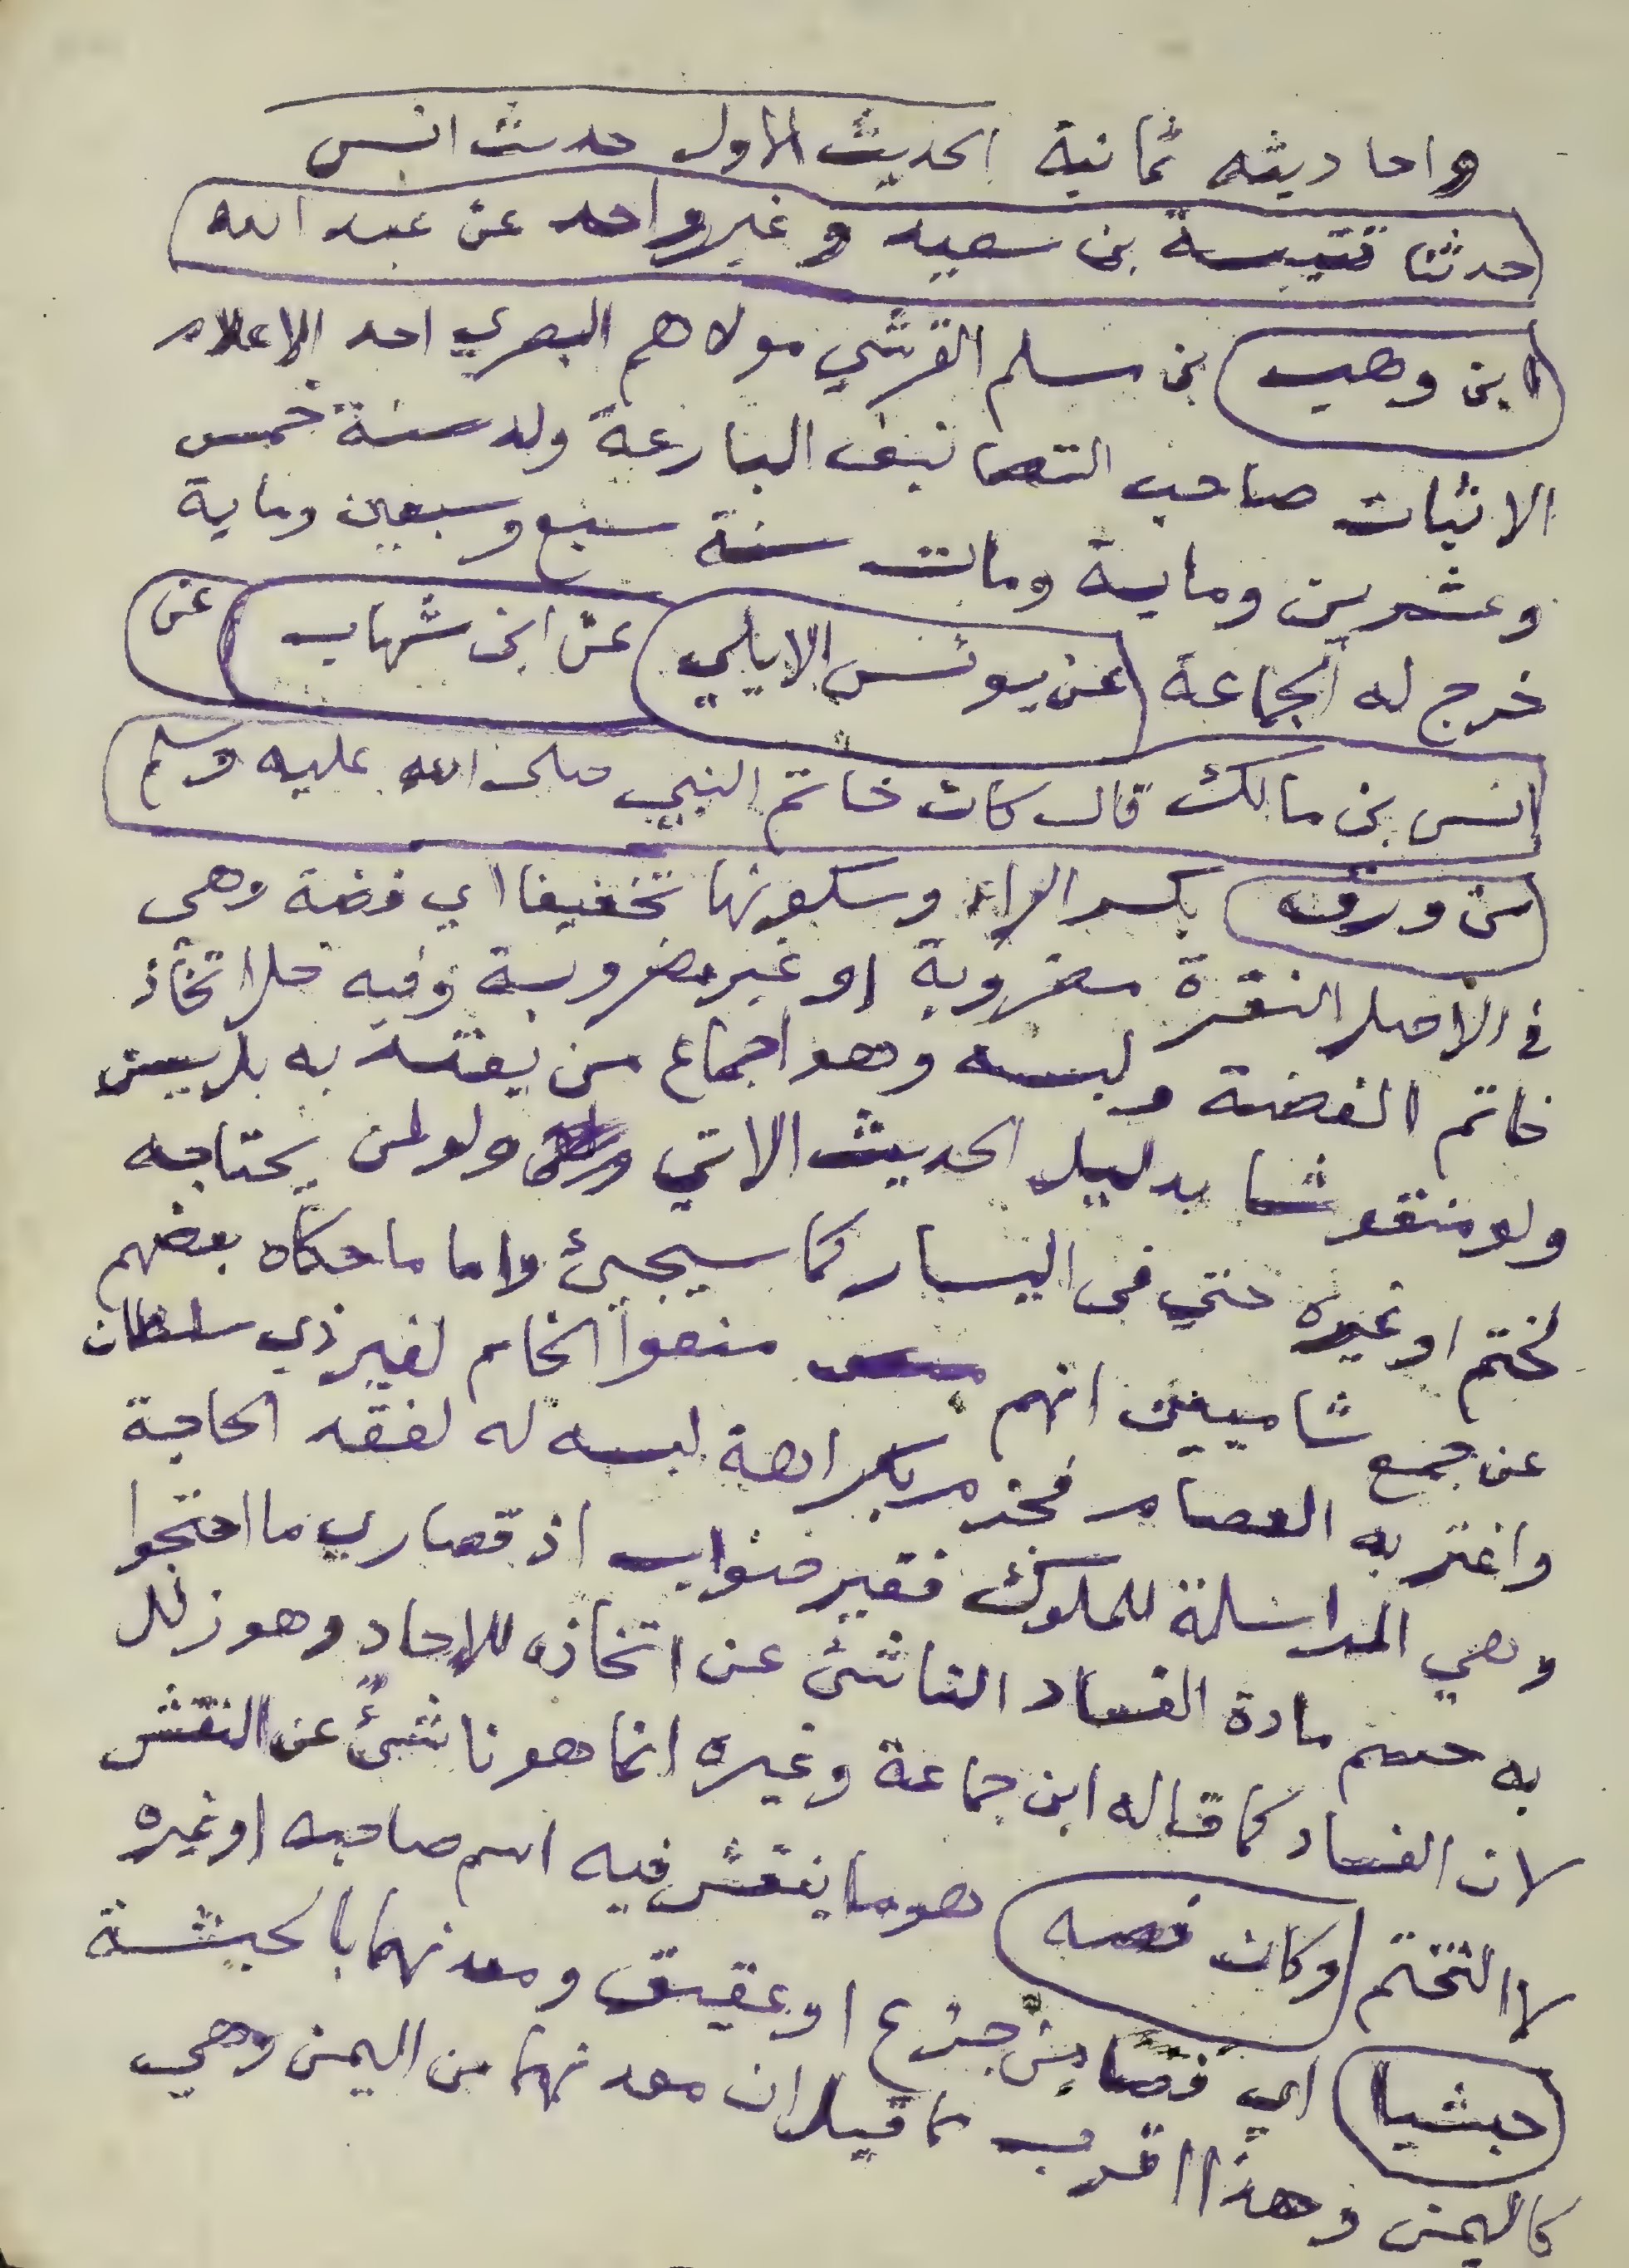 واحاديثه ثمانية الحديث الاول حدث انس
حدثنا قتيبة بن سعيد وغير واحد عن عبد الله
ابن وهب بن مسلم القرشي مولاهم البصري احد الاعلام
الاثبات صاحب التصانيف البارعة ولد سنة خمس
وعشرين وماية ومات سنة سبع وسبعين وماية
خرج له الجماعة عن يونس الايلي عن ابن شهاب عن
انس بن مالك قال كان خاتم النبي صلى الله عليه وسلم
من ورق بكسر الراء وسكونها تخفيفا اي فضة وهي
في الاصل النقرة مضروبة او غير مضروبة وفيه حل اتخاذ
خاتم الفضة ولبسه وهو اجماع من يعتد به بل يسن
ولو منقوشا بدليل الحديث الاتي ولو لمن يحتاجه
لختم او غيره حتي في اليسار كما سيجيئ واما ما حكاه بعضهم
عن جمع شاميين انهم منعوا الخاتم لغير ذي سلطان
واغتر به العصام فجزم بكراهة لبسه له لفقد الحاجة
وهي المراسلة للملوك فغير صواب اذ قصاري ما احتجوا
به حسم مادة الفساد الناشئ عن اتخاذه للاحاد وهو زلل
لان الفساد كما قاله ابن جماعة وغيره انما هو ناشئ عن النقش
لا التختم وكان فصه هو ما ينقش فيه اسم صاحبه او غيره
حبشيا اي فصا من جزع او عقيق ومعدنهما بالحبشة
كاليمن وهذا اقرب مما قيل ان معدنهما من اليمن وهي